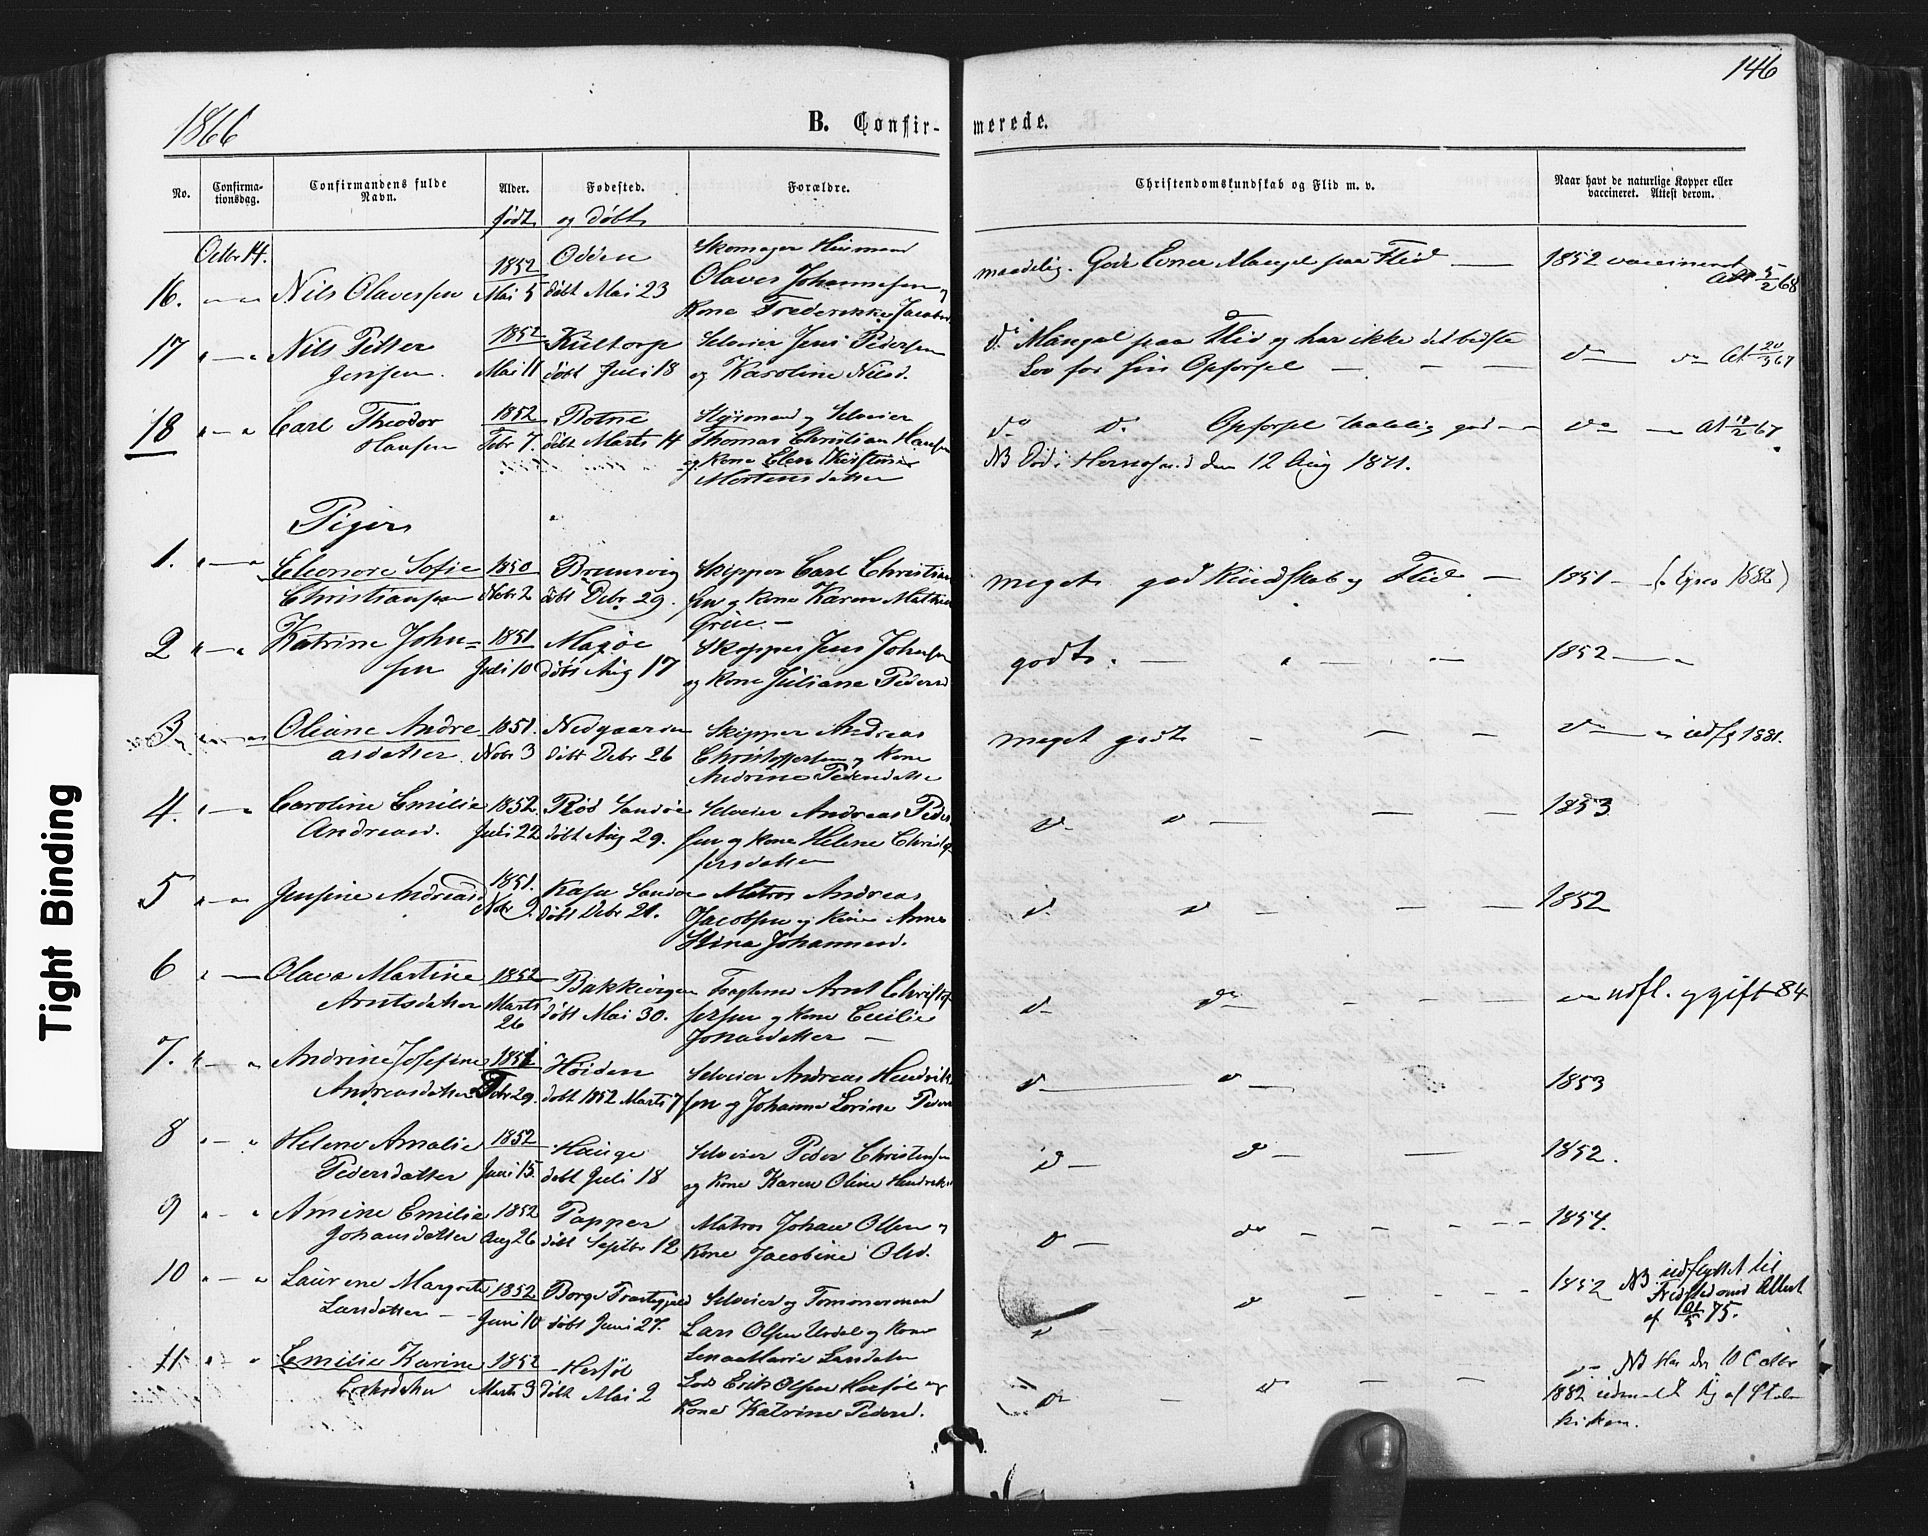 146
1866
B. Confir-
merede.
No.
Confirma-
tionsdag.
Confirmandens fulde
Navn.
Alder.
Fødested.
Forældre.
Christendomskundskab og Flid m. v.
Naar havt de naturlige Kopper eller
vaccineret. Attest derom.
født
og døbt
Octbr 14.
16. Nils Olavessen 1852 Mai 5 Odden døbt Mai 23
Skomager
Olaves Johannesen og
Kone Frederikke Jacobs
maadelig. Gode Evner Mangel paa Flid
1852 vaccineret
Att 5/2 68
17 Nils Petter
Jensen. 1852 Mai 11 døbt Juli 18
Selveier Jens Pedersen
og Karoline Nilsd.
do Mangel paa Flid og har ikke det bedste
Lov for sin Opførsel
do do At 20/3 67
18 Carl Theodor
Hansen 1852 Febr 7 Botne døbt Marts 14
Styrmand og Selveier
Thomas Christian Hansen
og Kone Elen Kirstine
Mortensdatter
do do Opførsel taalelig god
NB Død i Hernøsand den 12 Aug 1871.
do At 2 67
Piger
1. Eleonore Sofie
Christiansen 1850 Nobr 2 Brunvig døbt Debr 29.
Skipper Carl Christian
sen og Kone Karen Mathi
meget god Kundskab og Flid
1851 1882)
2 Katrine John-
sen 1851 Juli 10 døbt Aug 17
Skipper Jens Johnsen
og Kone Juliane Pedersd
godt.
1852
3 Oleane Andre
asdatter. 1851. Nobr 3 Nedgaarden døbt Debr 26
Skipper Andreas
Christoffersen og Kone
Andrine Pedersdatter
meget godt
do udfl 1881.
4. Caroline Emilie
Andreasd. 1852. Juli 22 Rød Sandøe døbt Aug 29.
Selveier Andreas Peder
sen og Kone Helene Christof
fersdatter
do do
1853
5 Jensine Andreasd 1851. Nobr 9. Sandøe døbt Debr 21.
Matros Andreas
Jacobsen og Kone Anne
Stina Johannesd.
do do
1852
6 Olava Martine
Arntsdatter 1852 Marts 26 Bakkevigen døbt Mai 30.
Arnt Christof
fersen og Kone Cecilie
Jonasdatter
do do
do udfl. og gift 84
7. Andrine Josefine
Andreasdatter 1852 Febr 29. Høiden døbt 1852 Marts 7
Selveier Andreas Hendrik
sen og Johanne Lovise Peder
do do
1853
8 Helene Amalie
Pedersdatter 1852 Juni 15. Hauge døbt Juli 18
Selveier Peder Christensen
og Kone Karen Oline Hendriks
do do
1852.
9 Amine Emilie
Johansdatter 1852 Aug 26 Papper døbt Septbr 12
Matros Johan Olsen og
Kone Jacobine Olsd.
do do
1854.
10 Laurine Margrete
Larsdatter 1852 Juni 10 Borge døbt Juni 27.
Selveier og Tømmermand
Lars Olsen Urdal og Kone
Lena Marie Larsdatter
do do
1852 NB. udflyttet til
Fredstad med Attest
af 21/5 75.
11. Emilie Karine
Eriksdatter 1852 Marts 3 Hersøl døbt Mai 2
Lods Erik Olsen Hersøl og
Kone Katrine Pedersd.
do do
do NB Har den 10 Octbr
1882 udmeldt sig af Stats
kirken.
Tight Binding